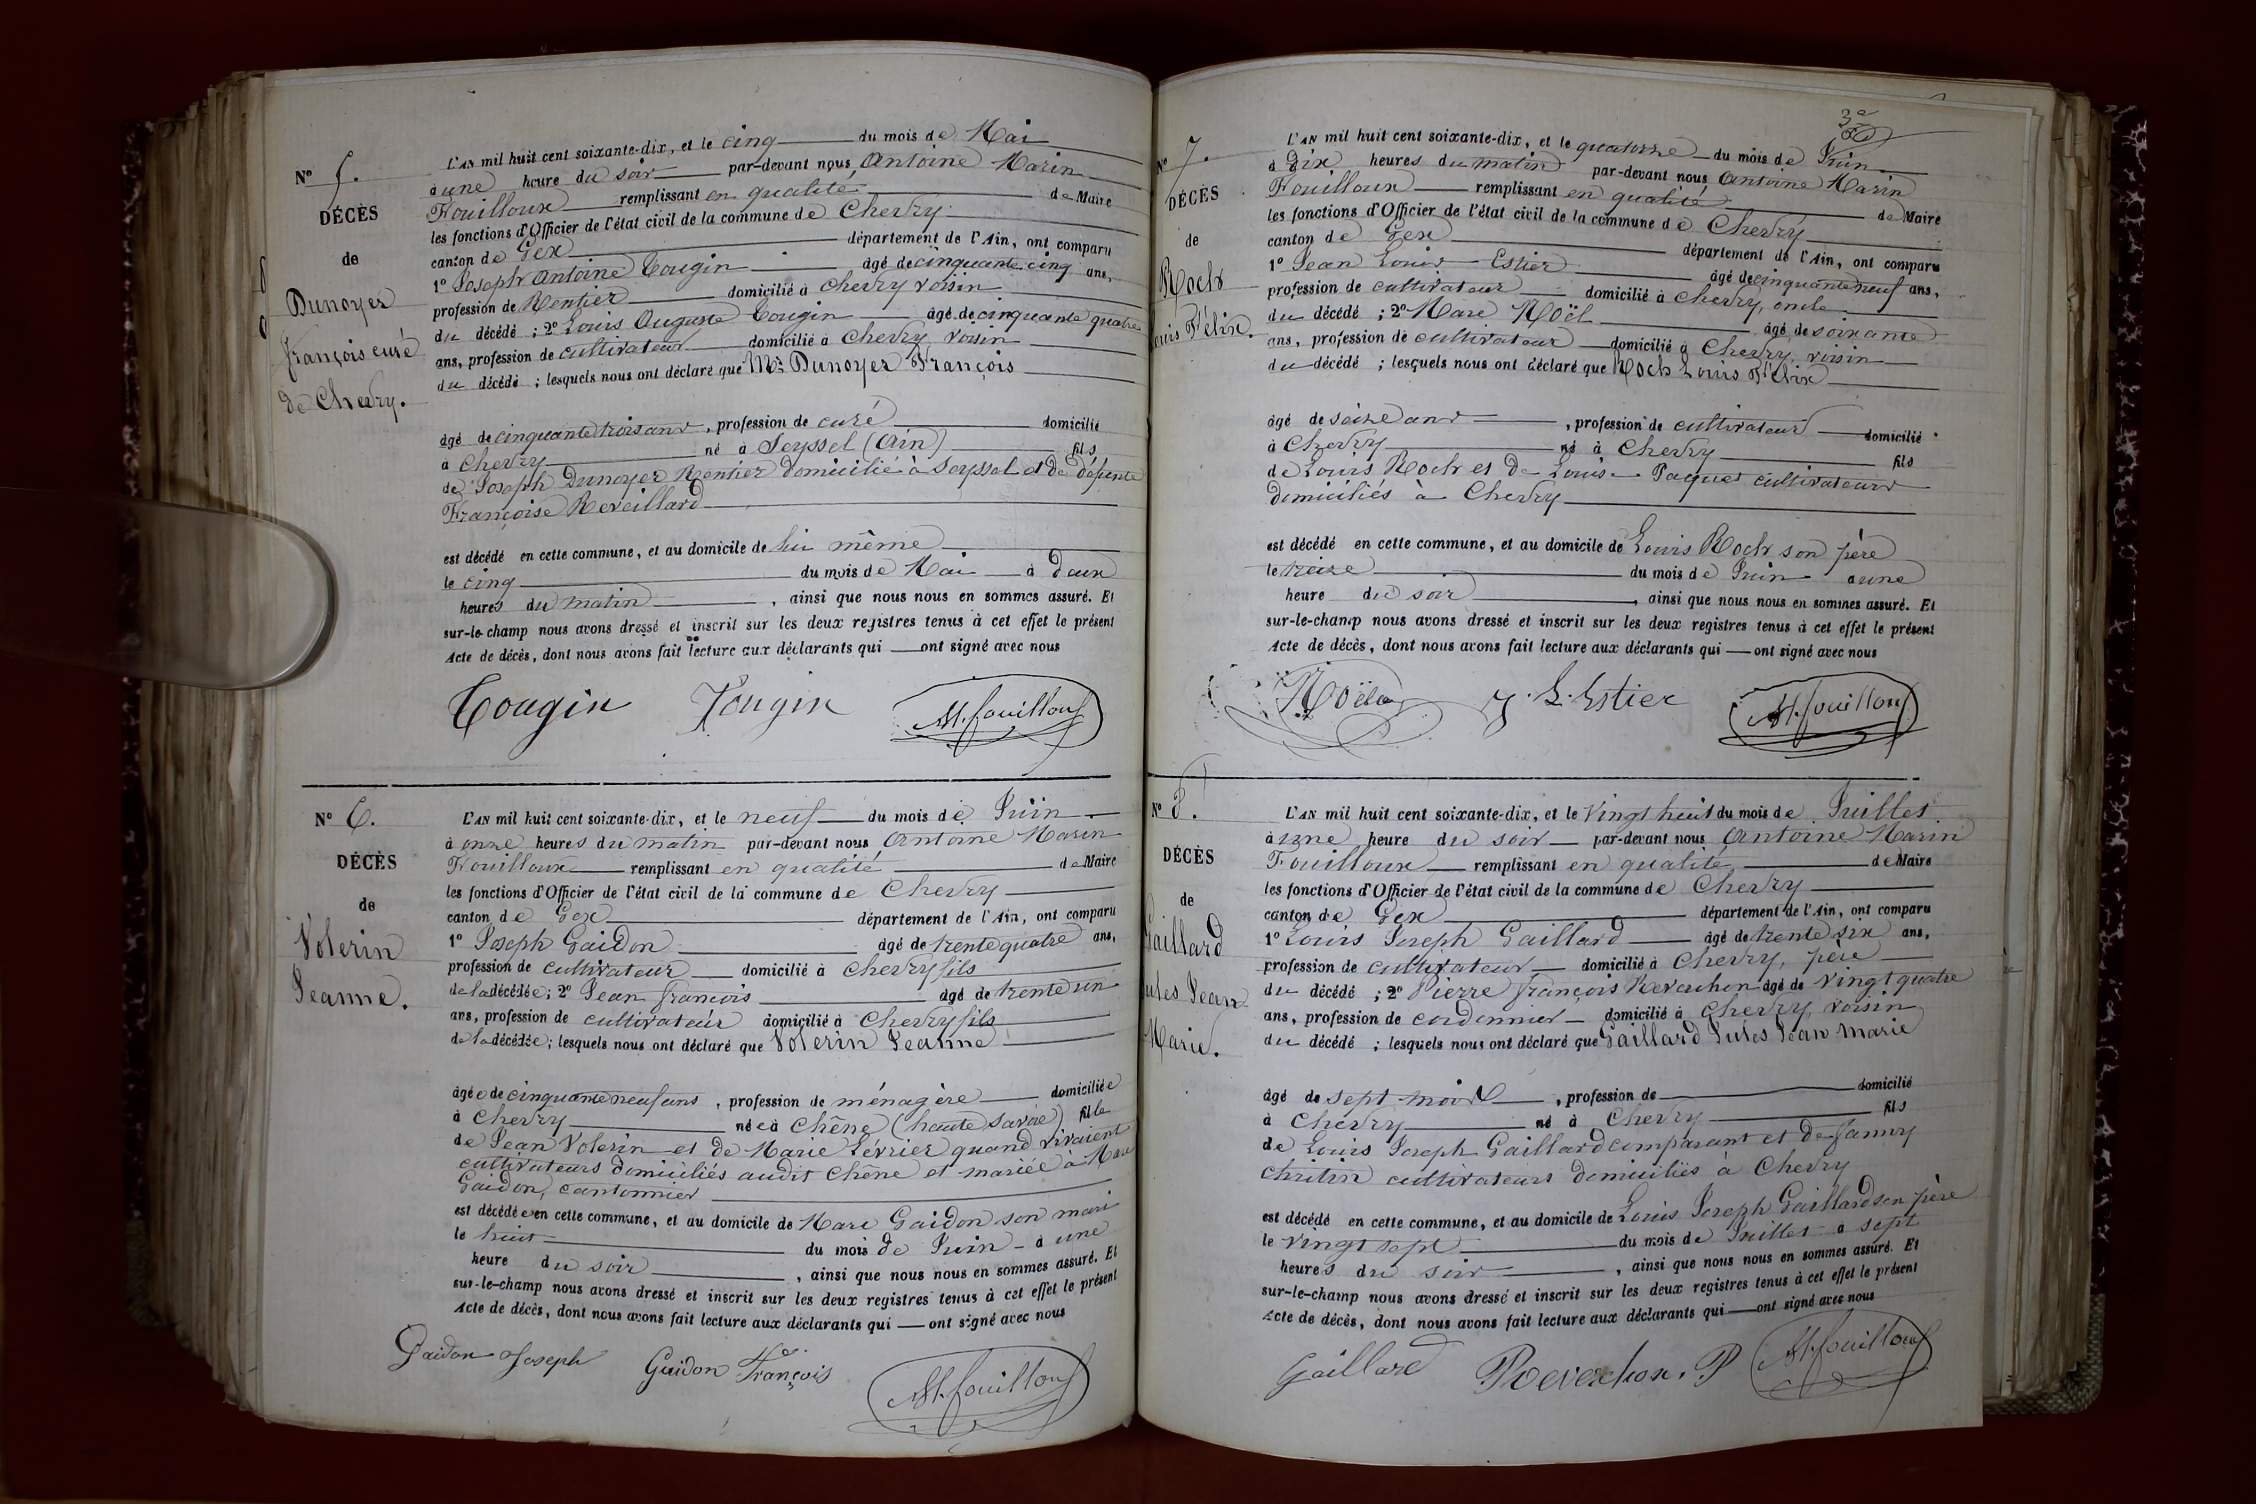 L'AN mil huit cent soixante-dix, et le cinq du mois de Mai
Nº 5.
à une heure du soir par-devant nous Antoine Marin
DÉCÈS
Fouilloux remplissant en qualité de Maire
les fonctions d'Officier de l'état civil de la commune de Chevry
de
canton de Gex département de l'Ain, ont comparu
1º Joseph Antoine Tougin âgé de cinquante cinq ans,
Dunoyer
profession de Rentier domicilié à Chevry voisin
du décédé ; 2º Louis Auguste Tougin âgé de cinquante quatre
François curé
ans, profession de cultivateur domicilié à Chevry voisin
du décédé ; lesquels nous ont déclaré que Mr Dunoyer François
de Chevry.
âgé de cinquante trois ans, profession de curé domicilié
à Chevry né à Seyssel (Ain) fils
de Joseph Dunoyer Rentier domicilié à Seyssel et de défunte
Françoise Reveillard
est décédé en cette commune, et au domicile de lui même
le cinq du mois de Mai à deux
heures du matin, ainsi que nous nous en sommes assuré. Et
sur-le-champ nous avons dressé et inscrit sur les deux registres tenus à cet effet le présent
Acte de décès, dont nous avons fait lecture aux déclarants qui ont signé avec nous
Tougin Tougin AM. fouilloux
Nº 6.
L'AN mil huit cent soixante-dix, et le neuf du mois de Juin
à onze heures du matin par-devant nous Antoine Marin
DÉCÈS
Fouilloux remplissant en qualité de Maire
les fonctions d'Officier de l'état civil de la commune de Chevry
de
canton de Gex département de l'Ain, ont comparu
Volerin
1º Joseph Gaidon âgé de trente quatre ans,
profession de cultivateur domicilié à Chevry fils
Jeanne.
de la décédée; 2º Jean françois âgé de trente un
ans, profession de cultivateur domicilié à Chevry fils
de la décédée; lesquels nous ont déclaré que Volerin Jeanne
âgée de cinquante neuf ans, profession de ménagère domiciliée
à Chevry née à Chêne (haute Savoie) fille
de Jean Volerin et de Marie Lévrier quand vivaient
cultivateurs domiciliés audit Chêne et mariée à Marc
Gaidon, cantonnier
est décédée en cette commune, et au domicile de Marc Gaidon son mari
le huit du mois de Juin à une
heure du soir, ainsi que nous nous en sommes assuré. Et
sur-le-champ nous avons dressé et inscrit sur les deux registres tenus à cet effet le présent
Acte de décès, dont nous avons fait lecture aux déclarants qui ont signé avec nous
Gaidon Joseph Gaidon François AM. fouilloux
3e
Nº 7.
L'AN mil huit cent soixante-dix, et le quatorze du mois de Juin
à dix heures du matin par-devant nous Antoine Marin
DÉCÈS
Fouilloux remplissant en qualité de Maire
les fonctions d'Officier de l'état civil de la commune de Chevry
de
canton de Gex département de l'Ain, ont comparu
Roch
1º Jean Louis Estier âgé de cinquante neuf ans,
profession de cultivateur domicilié à Chevry, oncle
ouis Félix.
du décédé ; 2º Marc Noël âgé de soixante
ans, profession de cultivateur domicilié à Chevry, voisin
du décédé ; lesquels nous ont déclaré que Roch Louis Félix
âgé de seize ans, profession de cultivateur domicilié
à Chevry né à Chevry fils
de Louis Roch et de Louise Paquet cultivateurs
domiciliés à Chevry
est décédé en cette commune, et au domicile de Louis Roch son père
le treize du mois de Juin à une
heure du soir, ainsi que nous nous en sommes assuré. Et
sur-le-champ nous avons dressé et inscrit sur les deux registres tenus à cet effet le présent
Acte de décès, dont nous avons fait lecture aux déclarants qui ont signé avec nous
Noël J. L. Estier AM. fouilloux
Nº 8.
L'AN mil huit cent soixante-dix, et le vingt huit du mois de Juillet
à une heure du soir par-devant nous Antoine Marin
DÉCÈS
Fouilloux remplissant en qualité de Maire
les fonctions d'Officier de l'état civil de la commune de Chevry
de
canton de Gex département de l'Ain, ont comparu
Gaillard
1º Louis Joseph Gaillard âgé de trente six ans,
profession de cultivateur domicilié à Chevry, père
ules Jean
du décédé ; 2º Pierre françois Reverchon âgé de vingt quatre
ans, profession de cordonnier domicilié à Chevry, voisin
Marie.
du décédé ; lesquels nous ont déclaré que Gaillard Jules Jean Marie
âgé de sept mois, profession de domicilié
à Chevry né à Chevry fils
de Louis Joseph Gaillard comparant et de fanny
Chritin cultivateurs domiciliés à Chevry
est décédé en cette commune, et au domicile de Louis Joseph Gaillard son père
le vingt sept du mois de Juillet à sept
heures du soir, ainsi que nous nous en sommes assuré. Et
sur-le-champ nous avons dressé et inscrit sur les deux registres tenus à cet effet le présent
Acte de décès, dont nous avons fait lecture aux déclarants qui ont signé avec nous
Gaillard Reverchon. P AM. fouilloux